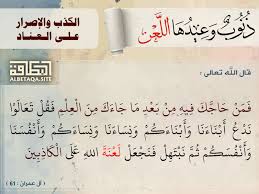 ذُنُوبٌ وَعِيدُهَا اللَّعْن
الكذب والإصرار
على العناد
البطاقة
ALBETAQA.SITE
قال اللَّه تعالى :
فَمَنْ حَاجَّكَ فِيهِ مِنْ بَعْدِ مَا جَاءَكَ مِنَ الْعِلْمِ فَقُلْ تَعَالَوْا
نَدْعُ أَبْنَاءَنَا وَأَبْنَاءَكُمْ وَنِسَاءَنَا وَنِسَاءَكُمْ وَأَنْفُسَنَا
وَأَنْفُسَكُمْ ثُمَّ نَبْتَهِلْ فَنَجْعَلْ لَعْنَةَ اللهِ عَلَى الْكَاذِبِينَ
( آل عمران : 61 )